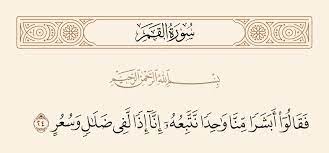 سُورَةُ القَمَرِ
بِسْمِ اللَّهِ الرَّحْمَٰنِ الرَّحِيمِ
فَقَالُوٓا۟ أَبَشَرًا مِّنَّا وَٰحِدًا نَّتَّبِعُهُۥٓ إِنَّآ إِذًا لَّفِى ضَلَٰلٍ وَسُعُرٍ ٢٤